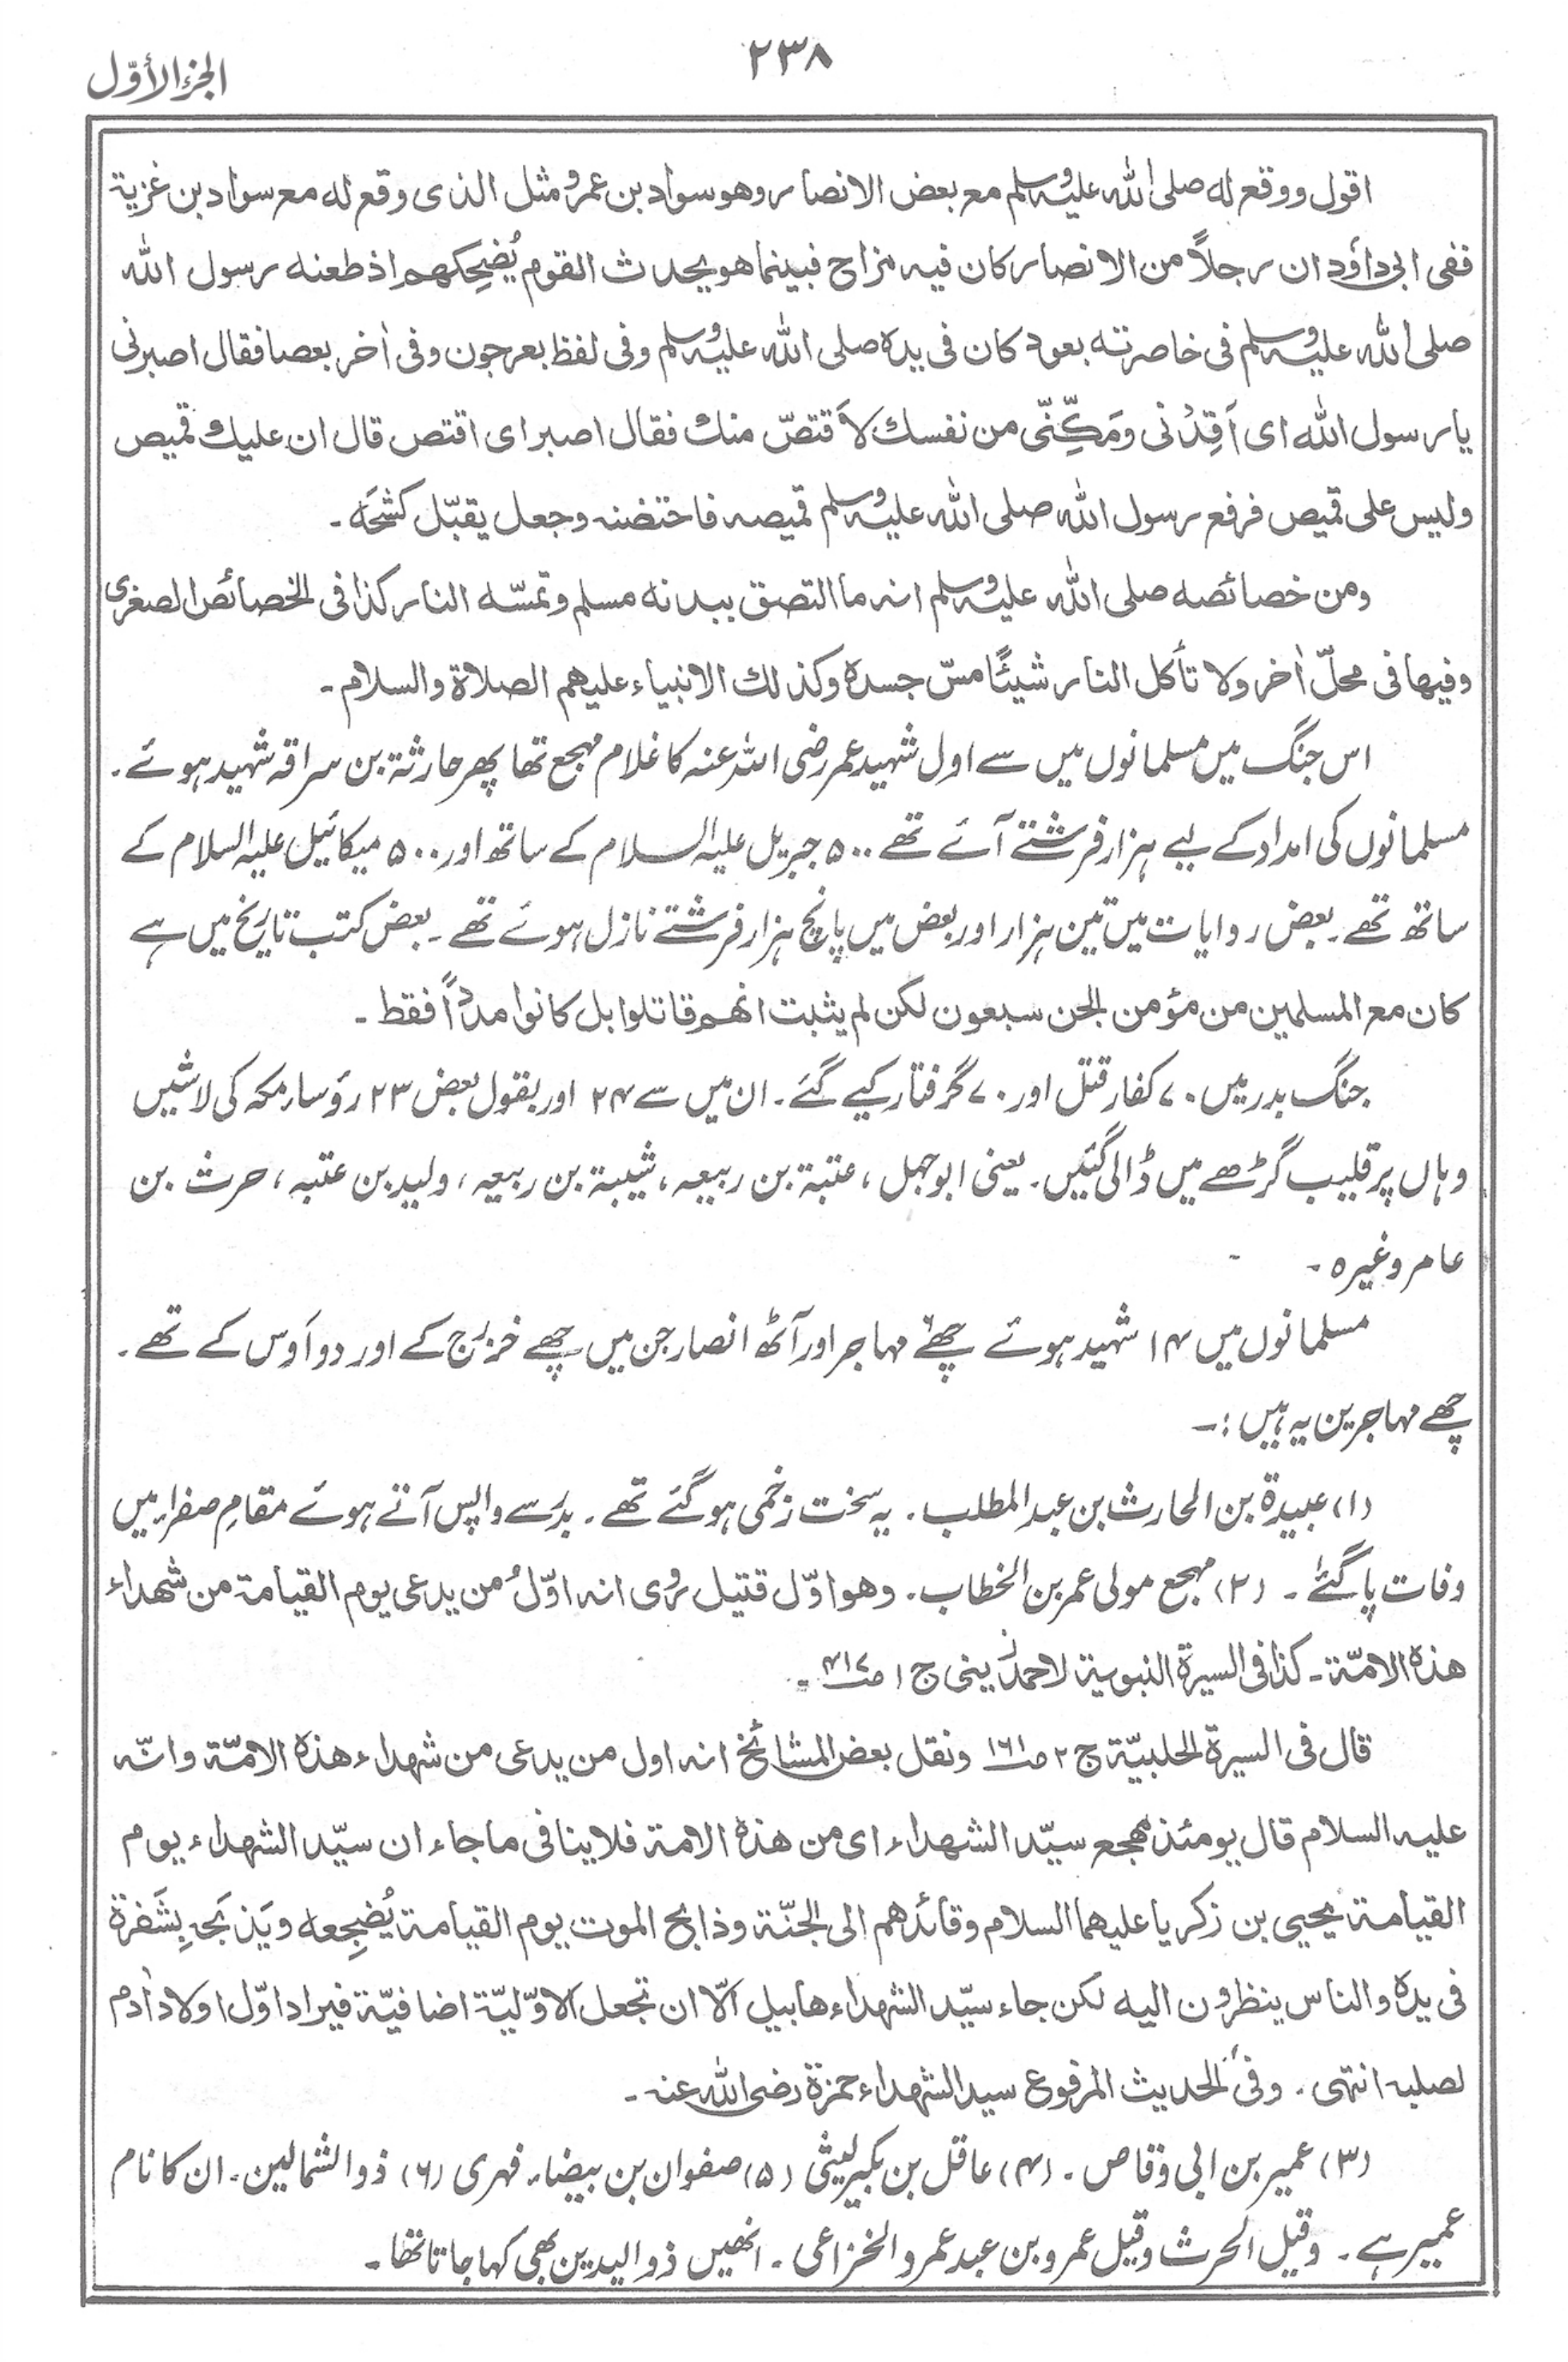 ٢٣٨
الجزء الأوّل
اقول ووقع له صلى الله عليه وسلم مع بعض الانصار وهو سواد بن عمرو مثل الذى وقع له مع سواد بن غزية
ففى ابى داؤد ان رجلاً من الانصار كان فيه مزاح فبينما هو يحدث القوم يُضحِكهم اذ طعنه رسول الله
صلى الله عليه وسلم فى خاصرته بعود كان فى يده صلى الله عليه وسلم وفى لفظ بعرجون وفى أخر بعصا فقال اصبرنى
يا رسول الله اى اَقِدْنى ومَكِّنّى من نفسك لاَقتصّ منك فقال اصبر اى اقتص قال ان عليك قميص
وليس على قميص فرفع رسول الله صلى الله عليه وسلم قميصه فاحتضنه وجعل يقبّل كشحَه ۔
ومن خصائصه صلى الله عليه وسلم انه ما التصق ببدنه مسلم وتمسّه النار كذا فى الخصائص الصغرى
وفيها فى محلّ أخر ولا تأكل النار شيئًا مسّ جسده وكذلك الانبياء عليهم الصلاة والسلام ۔
اس جنگ میں مسلمانوں میں سے اول شہید عمر رضی اللہ عنہ کا غلام مہجع تھا پھر حارثۃ بن سراقہ شہید ہوئے ۔
مسلمانوں کی امداد کے لیے ہزار فرشتے آئے تھے ۵۰۰ جبریل علیہ السلام کے ساتھ اور ۵۰۰ میکائیل علیہ السلام کے
ساتھ تھے ۔ بعض روایات میں تین ہزار اور بعض میں پانچ ہزار فرشتے نازل ہوئے تھے ۔ بعض کتب تاریخ میں ہے
كان مع المسلمين من مؤمن الجن سبعون لكن لم يثبت انهم قاتلوا بل كانوا مدداً فقط ۔
جنگ بدر میں ۷۰ کفار قتل اور ۷۰ گرفتار کیے گئے ۔ ان میں سے ۲۴ اور بقول بعض ۲۳ رؤساء مکہ کی لاشیں
وہاں پر قلیب گڑھے میں ڈالی گئیں ۔ یعنی ابوجہل ، عتبۃ بن ربیعہ ، شیبۃ بن ربیعہ ، ولید بن عتبہ ، حرث بن
عامر وغیرہ ۔
مسلمانوں میں ۱۴ شہید ہوئے چھے مہاجر اور آٹھ انصار جن میں چھے خزرج کے اور دو اَوس کے تھے ۔
چھے مہاجرین یہ ہیں :۔
(۱) عبیدۃ بن الحارث بن عبد المطلب ۔ یہ سخت زخمی ہو گئے تھے ۔ بدر سے واپس آتے ہوئے مقامِ صفراء میں
وفات پا گئے ۔ (۲) مہجع مولی عمر بن الخطاب ۔ وهو اوّل قتيل رُوى انه اوّلُ من يدعى يوم القيامة من شهداء
هذه الامّة ۔ كذا فى السيرة النبوية لاحمد زينى ج ١
قال فى السيرة الحلبيّة ج ٢ صـ١٦١ ونقل بعض المشائخ انه اول من يدعى من شهداء هذه الامّة وانّه
عليه السلام قال يومئذ مهجع سيّد الشهداء اى من هذه الامة فلا ينافى ما جاء ان سيّد الشهداء يوم
القيامة يحيى بن زكريا عليهما السلام وقائدهم الى الجنّة وذابح الموت يوم القيامة يُضجِعه ويَذبَحه بِشَفرة
فى يده والناس ينظرون اليه لكن جاء سيّد الشهداء هابيل الّا ان تجعل الاوّليّة اضافيّة فيراد اوّل اولاد أدم
لصلبه انتهى ۔ وفى الحديث المرفوع سيد الشهداء حمزة رضى الله عنه ۔
(۳) عمیر بن ابی وقاص ۔ (۴) عاقل بن بکیر لیثی (۵) صفوان بن بیضاء فہری (۶) ذو الشمالین ۔ ان کا نام
عمیر ہے ۔ وقیل الحرث وقیل عمرو بن عبد عمرو الخزاعی ۔ انھیں ذوالیدین بھی کہا جاتا تھا ۔